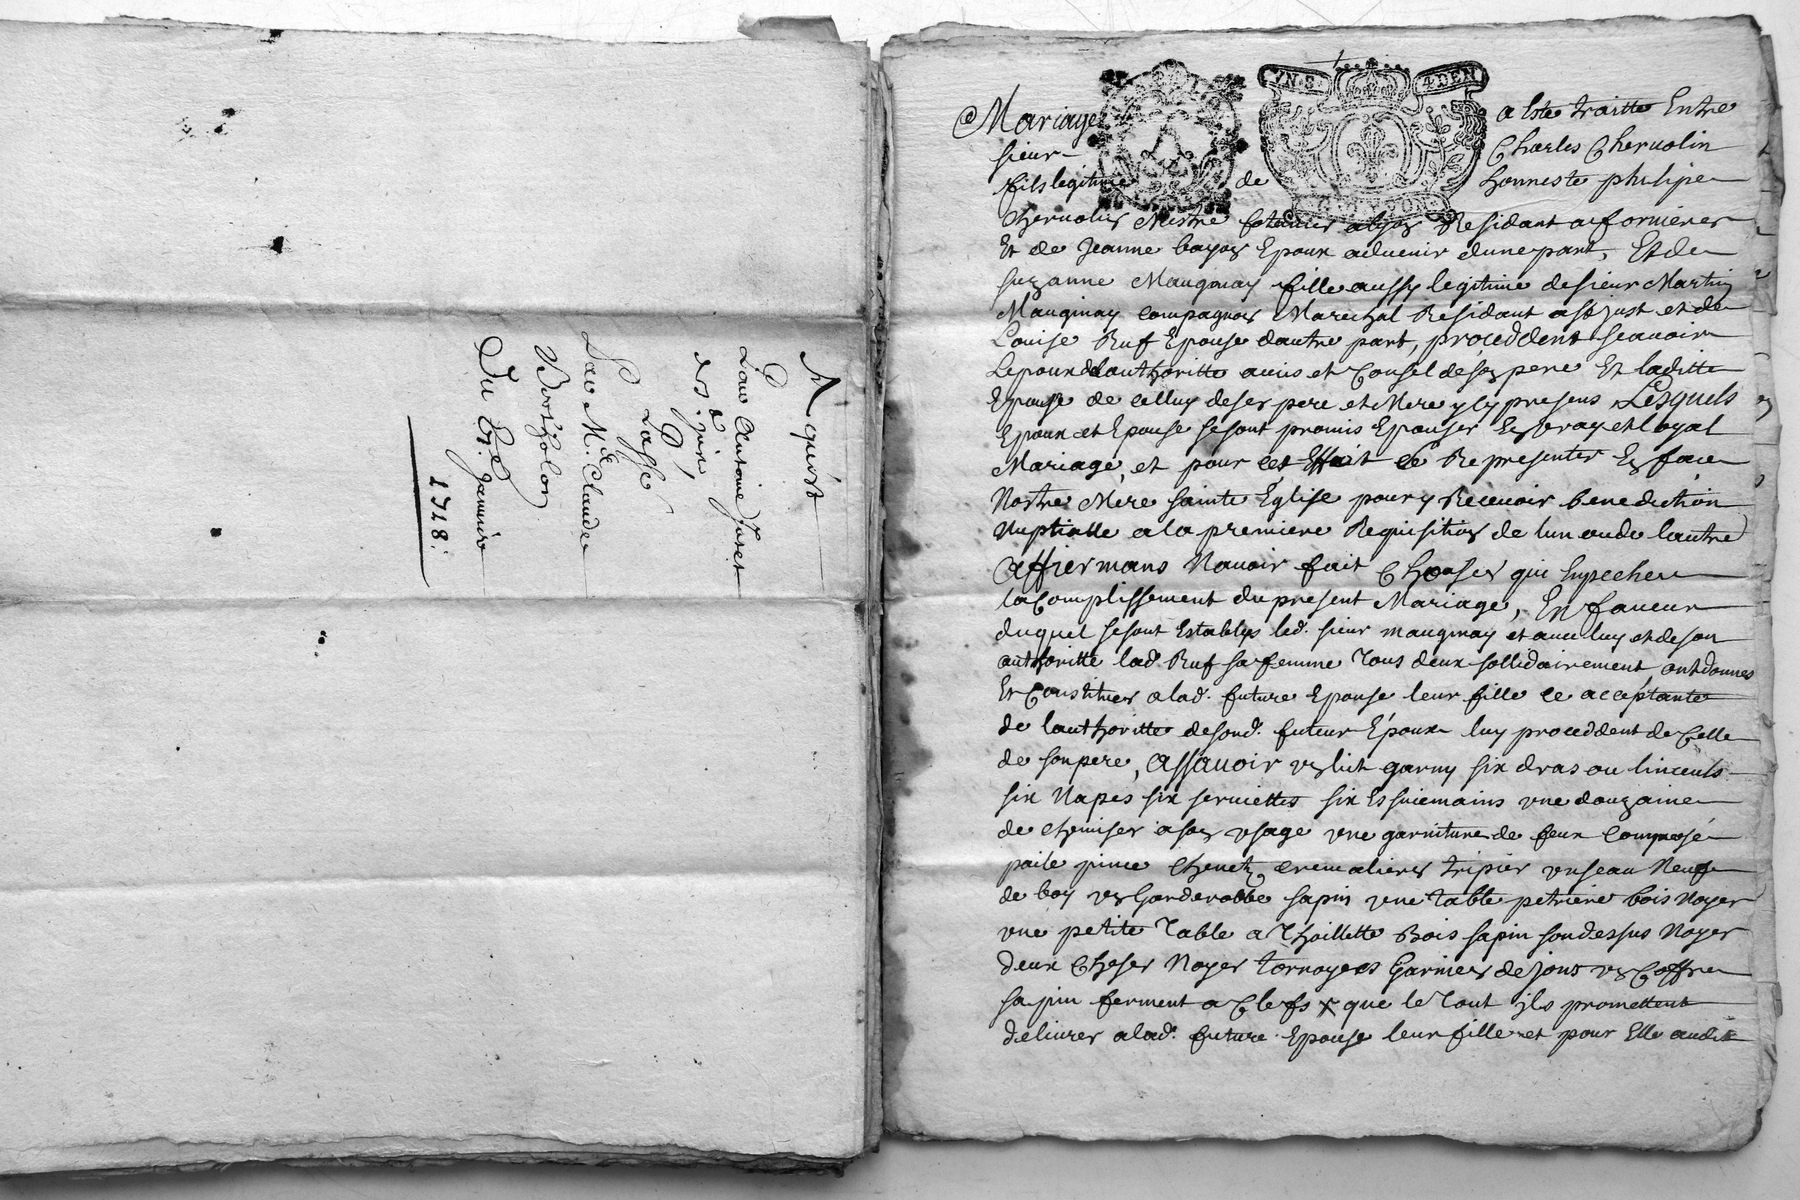 Aquist
Pour Antoine Juret
des. juin
Lasse
Sav Me. Claude
Berthollon
Du 6e. Janvier
1718:
VN S. 4 DEN
Mariage a Esté traitté Entre
sieur Charles Cheruolin
fils legitime de honneste philipe
Cheruolin Mestre Residant a fornieres
Et de Jeanne bayon Epoux aduenir dune part, Et de
suzanne Mauginay fille aussy legitime de sieur Martin
Mauginay compagnon Marechal Residant a st just et de
Louise Ruf Epouse dautre part, proceddent scauoir
Lepoux de lauthoritte auis et Conseil de son pere Et laditte
Epouse de celluy de ses pere et Mere y Cy presens Lesquels
Epoux et Epouse se sont promis Epouser En vray et loyal
Mariage, et pour cet Effait se Representer En face
Nostre Mere sainte Église pour y Receuoir benediction
Nuptialle a la premiere Requisition de lun ou de lautre
Affiermans Nauoir fait Choses qui Enpeche
laComplissement du present Mariage, En faueur
duquel se sont Establys led. sieur mauginay et auec luy et de son
authoritte lad. Ruf sa femme Tous deux sollidairement ont donnes
Et Constitues a lad. future Epouse leur fille ce acceptante
de lauthoritte de sond. futeur Époux luy proceddent de Celle
de son pere, Assauoir un lict garny six dras ou linceuls
six Napes six seruiettes six Essuiemains vne douzaine
de chemises a son vsage vne garniture de feux Composé
paile pince chenetz cremaliere tripier un seau Neuf
de boy un Garderobbe sapin vne Table petriere bois Noyer
vne petite Table a Thiillette Bois sapin son dessus Noyer
deux Cheses Noyer tornoyees Garnies de jons un Coffre
sapin ferment a Clefs x que le Tout ils promettent
deliurer a lad. future Epouse leur fille et pour Elle audit